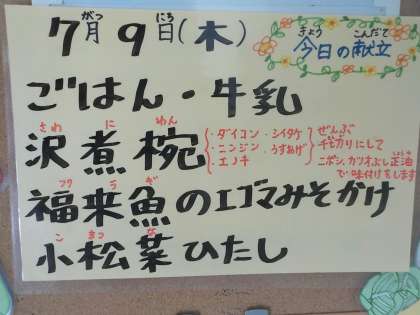 7月9日(木)
がつ にち
きょう こんだて
今日の献立
ごはん・牛乳
さわ に わん
沢煮椀
・ダイコン・シイタケ
・ニンジン・うすあげ
・エノキ
ぜんぶ
千切りにして
ニボシ、カツオぶし、正油
しょうゆ
で味付けをします
フク ラ ギ
福来魚のエゴマみそかけ
こ まつ な
小松菜ひたし